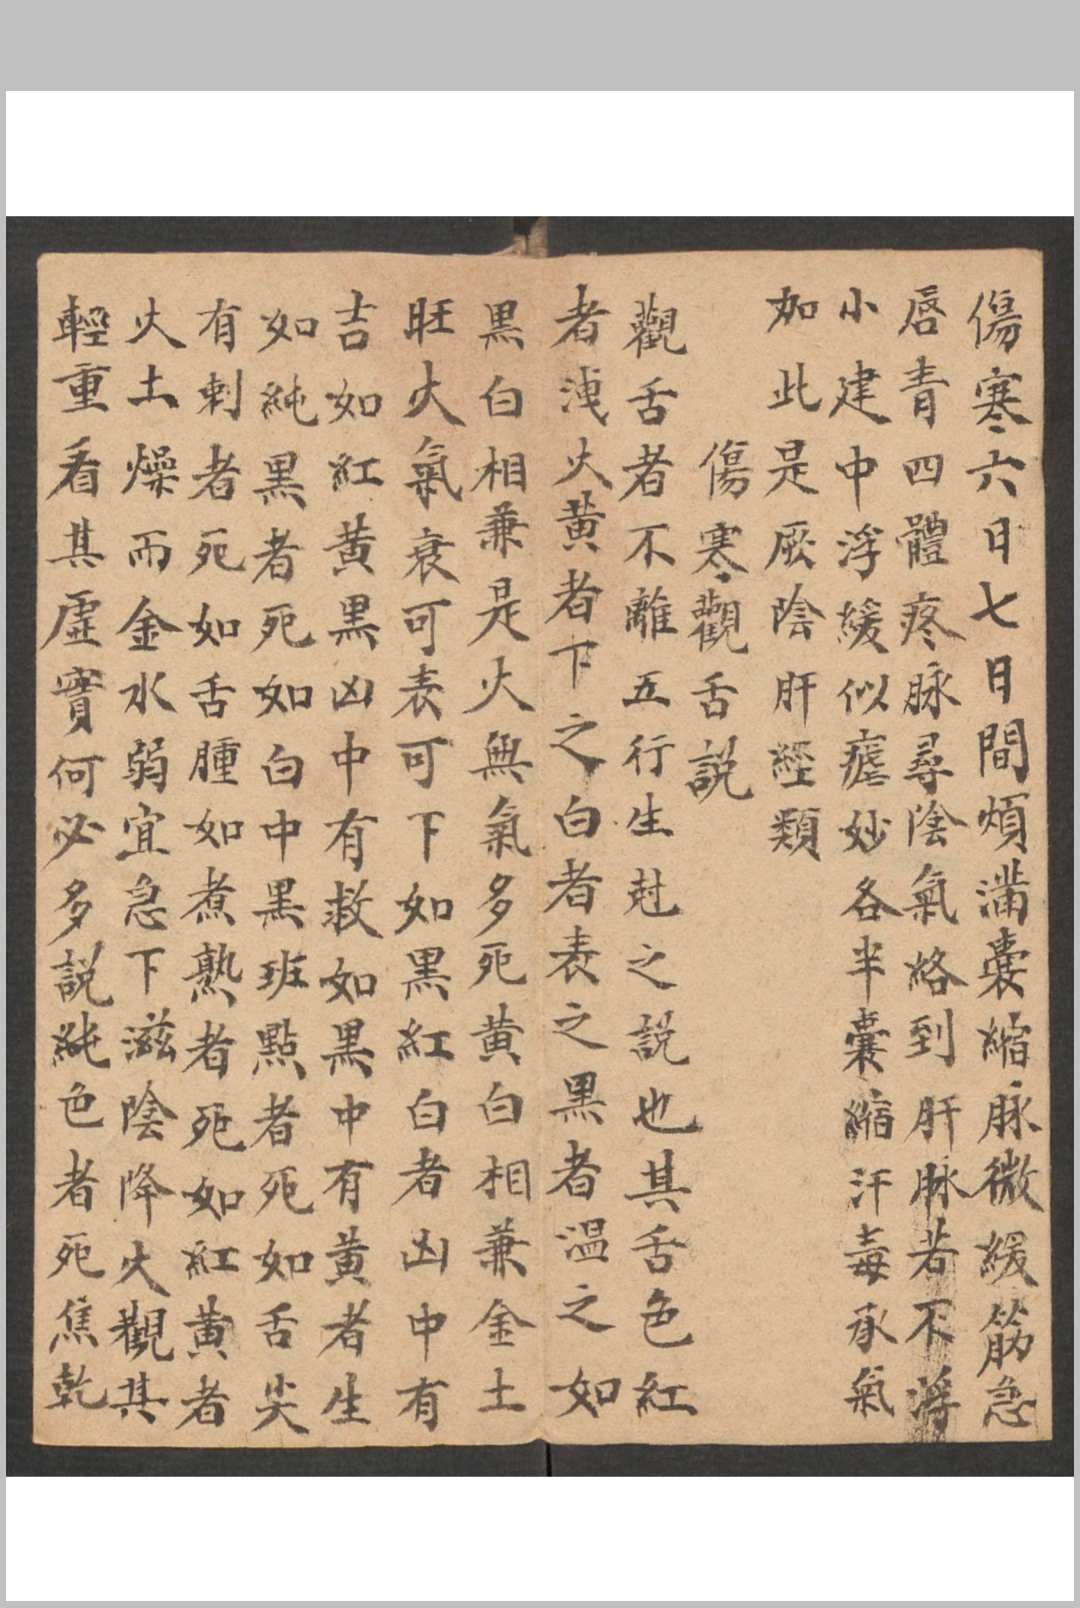 傷寒六日七日間煩滿囊縮脉微緩筋急
唇青四體疼脉尋陰氣絡到肝脉若不浮
小建中浮緩似瘧妙各半囊縮汗毒承氣
如此是厥陰肝經類
傷寒觀舌說
觀舌者不離五行生尅之說也其舌色紅
者洩火黃者下之白者表之黑者温之如
黑白相兼是火無氣多死黃白相兼金土
旺火氣衰可表可下如黑紅白者凶中有
吉如紅黃黑凶中有救如黑中有黃者生
如純黑者死如白中黑班點者死如舌尖
有刺者死如舌腫如煮熟者死如紅黃者
火土燥而金水弱宜急下滋陰降火觀其
輕重看其虛實何必多說純色者死焦乾